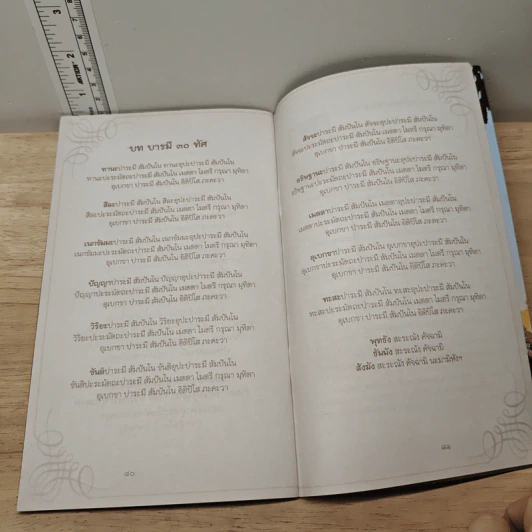 บท บารมี ๓๐ ทัศ
ทานะปาระมี สัมปันโน ทานะอุปะปาระมี สัมปันโน
ทานะปะระมัตถะปาระมี สัมปันโน เมตตา ไมตรี กรุณา มุทิตา
อุเบกขา ปาระมี สัมปันโน อิติปิโส ภะคะวา
สีละปาระมี สัมปันโน สีละอุปะปาระมี สัมปันโน
สีละปะระมัตถะปาระมี สัมปันโน เมตตา ไมตรี กรุณา มุทิตา
อุเบกขา ปาระมี สัมปันโน อิติปิโส ภะคะวา
เนกขัมมะปาระมี สัมปันโน เนกขัมมะอุปะปาระมี สัมปันโน
เนกขัมมะปะระมัตถะปาระมี สัมปันโน เมตตา ไมตรี กรุณา มุทิตา
อุเบกขา ปาระมี สัมปันโน อิติปิโส ภะคะวา
ปัญญาปาระมี สัมปันโน ปัญญาอุปะปาระมี สัมปันโน
ปัญญาปะระมัตถะปาระมี สัมปันโน เมตตา ไมตรี กรุณา มุทิตา
อุเบกขา ปาระมี สัมปันโน อิติปิโส ภะคะวา
วิริยะปาระมี สัมปันโน วิริยะอุปะปาระมี สัมปันโน
วิริยะปะระมัตถะปาระมี สัมปันโน เมตตา ไมตรี กรุณา มุทิตา
อุเบกขา ปาระมี สัมปันโน อิติปิโส ภะคะวา
ขันติปาระมี สัมปันโน ขันติอุปะปาระมี สัมปันโน
ขันติปะระมัตถะปาระมี สัมปันโน เมตตา ไมตรี กรุณา มุทิตา
อุเบกขา ปาระมี สัมปันโน อิติปิโส ภะคะวา
๘๐
สัจจะปาระมี สัมปันโน สัจจะอุปะปาระมี สัมปันโน
สัจจะปะระมัตถะปาระมี สัมปันโน เมตตา ไมตรี กรุณา มุทิตา
อุเบกขา ปาระมี สัมปันโน อิติปิโส ภะคะวา
อธิษฐานะปาระมี สัมปันโน อธิษฐานะอุปะปาระมี สัมปันโน
อธิษฐานะปะระมัตถะปาระมี สัมปันโน เมตตา ไมตรี กรุณา มุทิตา
อุเบกขา ปาระมี สัมปันโน อิติปิโส ภะคะวา
เมตตาปาระมี สัมปันโน เมตตาอุปะปาระมี สัมปันโน
เมตตาปะระมัตถะปาระมี สัมปันโน เมตตา ไมตรี กรุณา มุทิตา
อุเบกขา ปาระมี สัมปันโน อิติปิโส ภะคะวา
อุเบกขาปาระมี สัมปันโน อุเบกขาอุปะปาระมี สัมปันโน
อุเบกขาปะระมัตถะปาระมี สัมปันโน เมตตา ไมตรี กรุณา มุทิตา
อุเบกขา ปาระมี สัมปันโน อิติปิโส ภะคะวา
ทะสะปาระมี สัมปันโน ทะสะอุปะปาระมี สัมปันโน
ทะสะปะระมัตถะปาระมี สัมปันโน เมตตา ไมตรี กรุณา มุทิตา
อุเบกขา ปาระมี สัมปันโน อิติปิโส ภะคะวา
พุทธัง สะระณัง คัจฉามิ
ธัมมัง สะระณัง คัจฉามิ
สังฆัง สะระณัง คัจฉามิ นะมามิหังฯ
๘๑
1
2
3